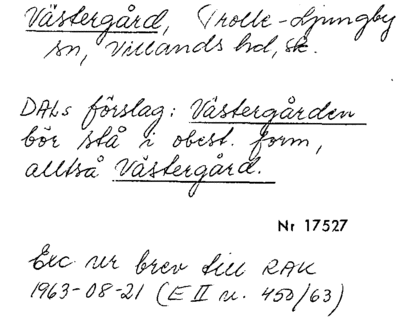 Västergård, Trolle-Ljungby
sn, Villands hd, Sk.
DALs förslag: Västergården
bör stå i obest. form,
alltså Västergård.
Nr 17527
Exc ur brev till RAK
1963-08-21 (E II u. 450/63)